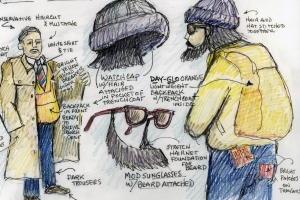 CONSERVATIVE HAIRCUT
& MUSTACHE
WHITE SHIRT
& TIE
BRIGHT
BACKPACK
IN FRONT
READY
TO
DARK
TROUSERS
WATCH CAP
W/HAIR
ATTACHED
IN POCKET OF
TRENCHCOAT
DAY-GLO ORANGE
LIGHTWEIGHT
BACKPACK
W/TRENCHCOAT
INSIDE
HAIR AND
HAT STITCHED
TOGETHER
STRETCH
HAIRNET
FOUNDATION
FOR
BEARD
MOD SUNGLASSES
W/BEARD ATTACHED
PATCHES
ON